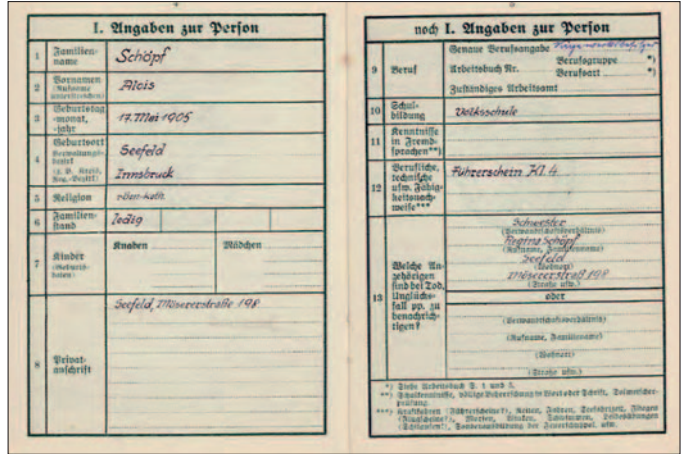 I. Angaben zur Person
1 Familien-
name
Schöpf
2 Vornamen
(Rufname
unterstreichen)
Alois
3 Geburtstag
-monat,
-jahr
17. Mai 1905
4 Geburtsort
Verwaltungs-
bezirk
(z. B. Kreis,
Reg.-Bezirk)
Seefeld
Innsbruck
5 Religion
röm-kath.
6 Familien-
stand
ledig
7 Kinder
(Geburts-
daten)
Knaben
Mädchen
8 Privat-
anschrift
Seefeld, Möserestraße 198
noch I. Angaben zur Person
9 Beruf
Genaue Berufsangabe
Berufsgruppe *)
Arbeitsbuch Nr. Berufsart *)
Zuständiges Arbeitsamt
10 Schul-
bildung
Volksschule
11 Kenntnisse
in Fremd-
sprachen**)
12 Berufliche,
technische
usw. Fähig-
keitsnach-
weise***
Führerschein Kl. 4
13 Welche An-
gehörigen
sind bei Tod,
Unglücks-
fall pp. zu
benachrich-
tigen?
Schwester
(Verwandtschaftsverhältnis)
Regina Schöpf
(Rufname, Familienname)
Seefeld
(Wohnort)
Möserestraß 198
(Straße usw.)
oder
(Verwandtschaftsverhältnis)
(Rufname, Familienname)
(Wohnort)
(Straße usw.)
*) Siehe Arbeitsbuch S. 1 und 3.
**) Schulkenntnisse, völlige Beherrschung in Wort oder Schrift, Dolmetscher-
prüfung.